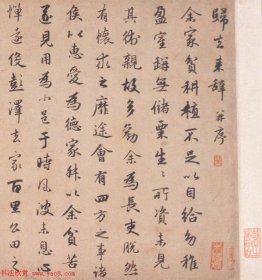 歸去来辞并序
余家貧耕植不足以自給幼稚
盈室缾無儲粟生〻所資未見
其術親故多勸余為長吏脫然
有懷求之靡途會有四方之事諸
侯以惠愛為德家叔以余貧苦
遂見用為小邑于時風波未息心
憚遠役彭澤去家百里公田之